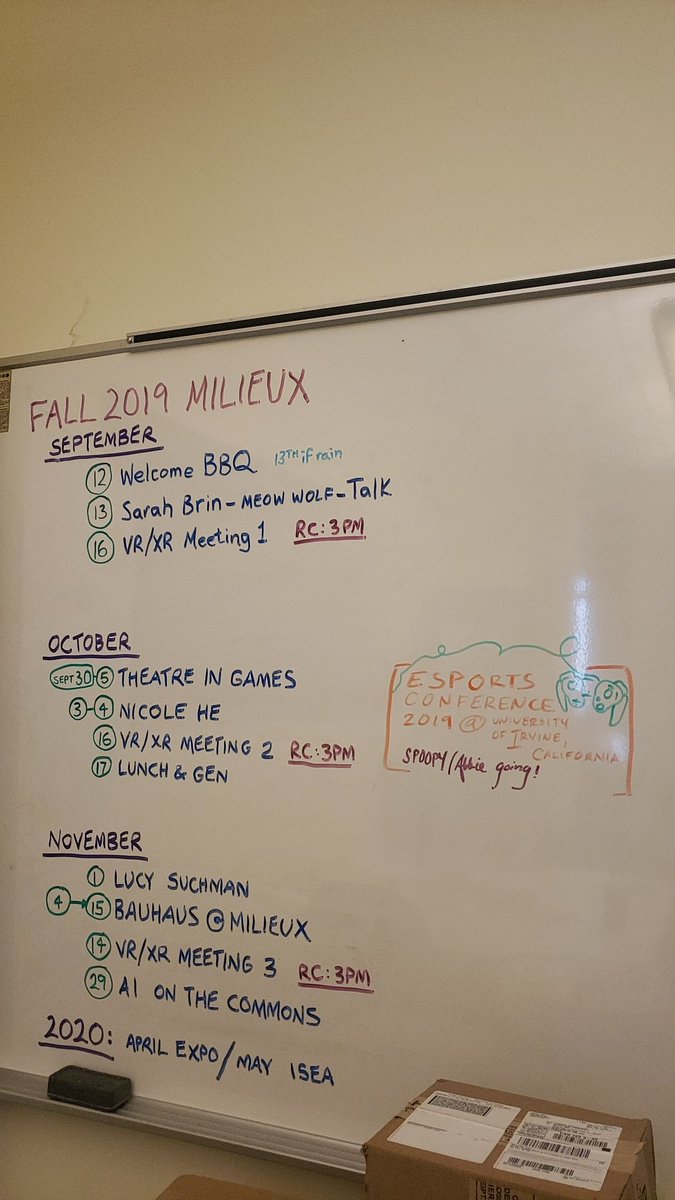 FALL 2019 MILIEUX
SEPTEMBER
12 Welcome BBQ 13TH if rain
13 Sarah Brin - MEOW WOLF - Talk
16 VR/XR Meeting 1 RC: 3PM
OCTOBER
SEPT 30 - 5 THEATRE IN GAMES
3 - 4 NICOLE HE
16 VR/XR MEETING 2 RC: 3PM
17 LUNCH & GEN
ESPORTS
CONFERENCE
2019 @ UNIVERSITY
OF IRVINE,
CALIFORNIA
SPOOPY/Abbie going!
NOVEMBER
1 LUCY SUCHMAN
4 → 15 BAUHAUS @ MILIEUX
14 VR/XR MEETING 3 RC: 3PM
29 AI ON THE COMMONS
2020: APRIL EXPO / MAY ISEA